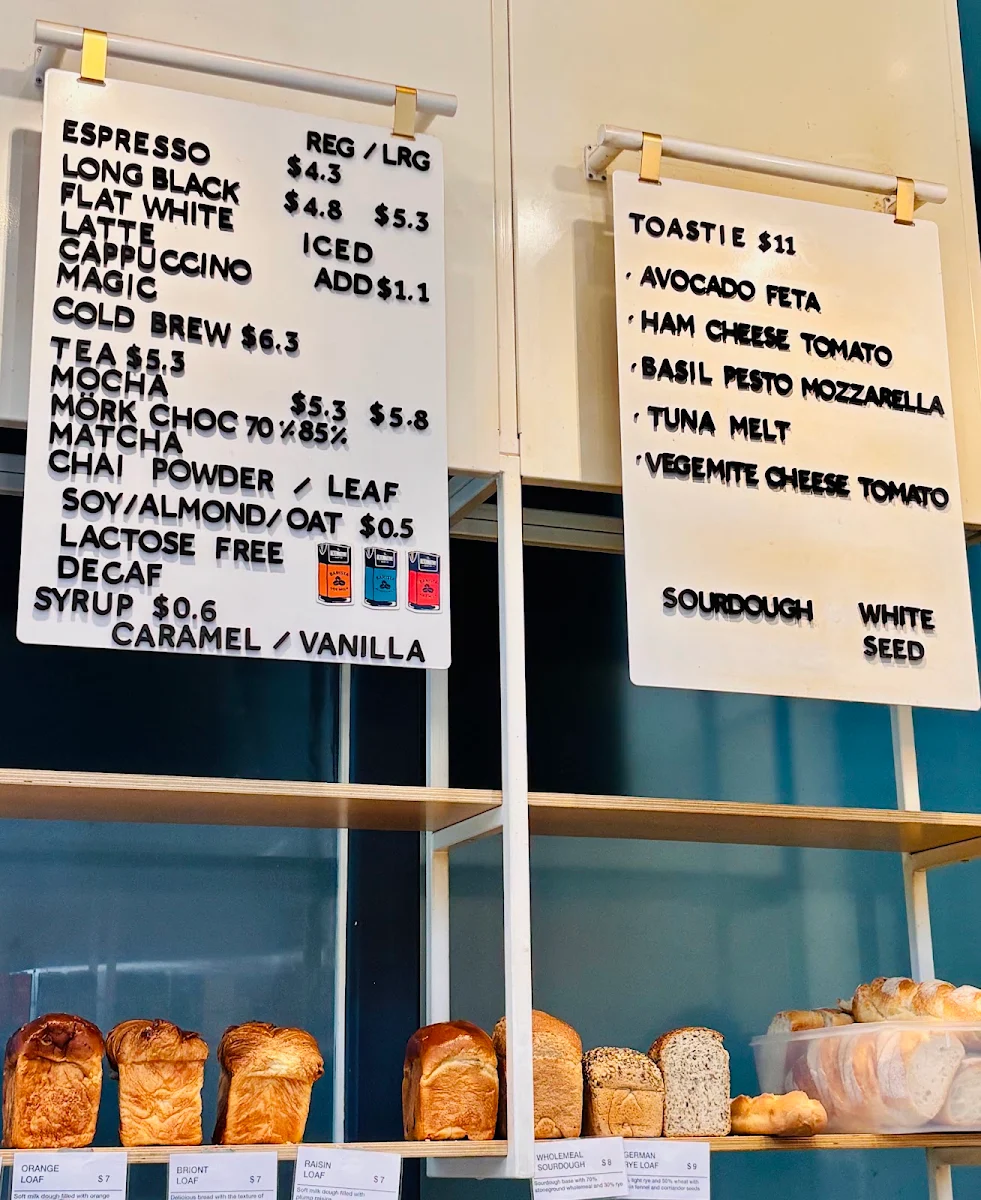 ESPRESSO REG / LRG
$4.3
LONG BLACK
FLAT WHITE $4.8 $5.3
LATTE ICED
CAPPUCCINO ADD $1.1
MAGIC
COLD BREW $6.3
TEA $5.3
MOCHA $5.3 $5.8
MÖRK CHOC 70%85%
MATCHA
CHAI POWDER / LEAF
SOY/ALMOND/OAT $0.5
LACTOSE FREE
DECAF
SYRUP $0.6
CARAMEL / VANILLA
TOASTIE $11
· AVOCADO FETA
· HAM CHEESE TOMATO
· BASIL PESTO MOZZARELLA
· TUNA MELT
· VEGEMITE CHEESE TOMATO
SOURDOUGH WHITE
SEED
ORANGE
LOAF $7
Soft milk dough filled with orange
BRIONT
LOAF $7
Delicious bread with the texture of
RAISIN
LOAF $7
Soft milk dough filled with
WHOLEMEAL
SOURDOUGH $8
Sourdough base with 70%
stoneground wholemeal and 30% rye
GERMAN
RYE LOAF $9
light rye and 50% wheat with
fennel and corriander seeds